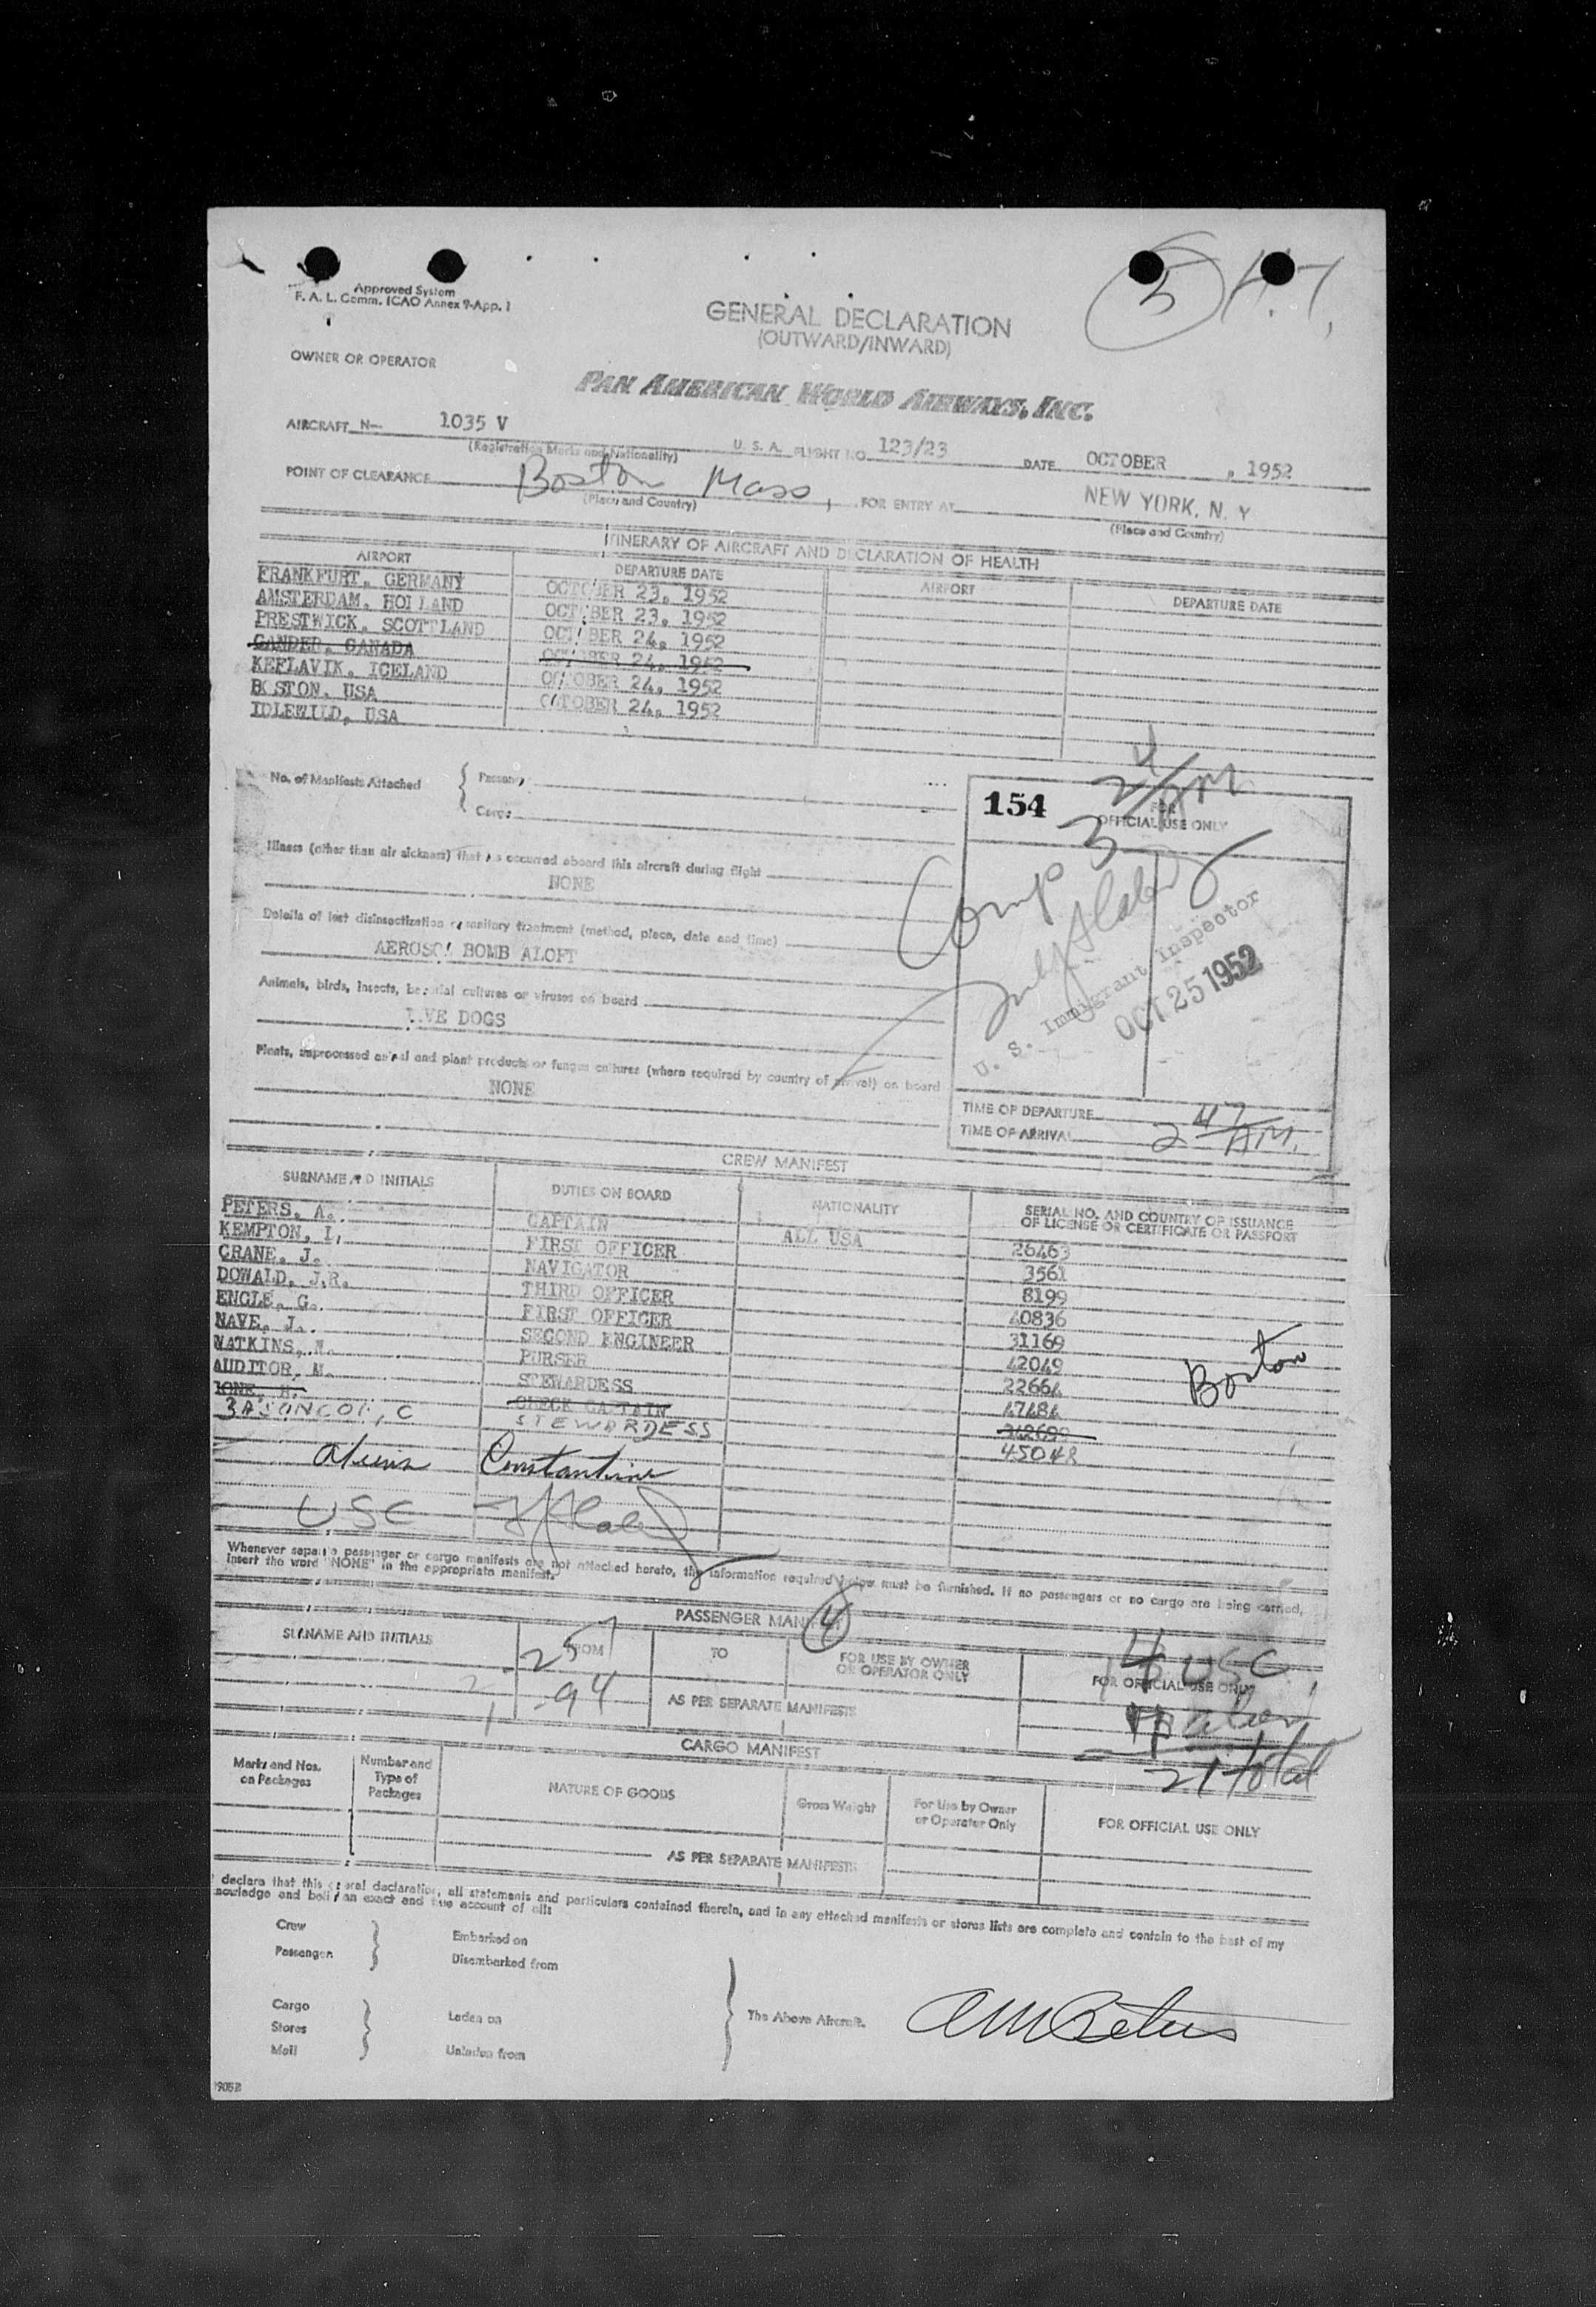 Approved System
F. A. L. Comm. ICAO Annex 9-App. 1
5
GENERAL DECLARATION
(OUTWARD/INWARD)
OWNER OR OPERATOR
PAN AMERICAN WORLD AIRWAYS, INC.
AIRCRAFT N- 1035 V U. S. A. FLIGHT NO. 123/23 DATE OCTOBER , 1952
(Registration Marks and Nationality)
POINT OF CLEARANCE Boston Mass, FOR ENTRY AT NEW YORK, N. Y
(Place and Country) (Place and Country)
ITINERARY OF AIRCRAFT AND DECLARATION OF HEALTH
AIRPORT DEPARTURE DATE AIRPORT DEPARTURE DATE
FRANKFURT, GERMANY OCTOBER 23, 1952
AMSTERDAM, HOLLAND OCTOBER 23, 1952
PRESTWICK, SCOTTLAND OCTOBER 24, 1952
GANDER, CANADA OCTOBER 24, 1952
KEFLAVIK, ICELAND OCTOBER 24, 1952
BOSTON, USA OCTOBER 24, 1952
IDLEWILD, USA
No. of Manifests Attached
Passeng
Cargo
154
FOR
OFFICIAL USE ONLY
24/AM
Comp 3
U. S. Immigrant Inspector
OCT 25 1952
Illness (other than air sickness) that has occurred aboard this aircraft during flight
NONE
Details of last disinsectization or sanitary treatment (method, place, date and time)
AEROSOL BOMB ALOFT
Animals, birds, insects, bacterial cultures or viruses on board
DOGS
Plants, unprocessed animal and plant products or fungus cultures (where required by country of arrival) on board
NONE
TIME OF DEPARTURE
TIME OF ARRIVAL 2 47 AM.
CREW MANIFEST
SURNAME AND INITIALS DUTIES ON BOARD NATIONALITY SERIAL NO. AND COUNTRY OF ISSUANCE
OF LICENSE OR CERTIFICATE OR PASSPORT
PETERS, A. CAPTAIN ALL USA 26463
KEMPTON, I, FIRST OFFICER 3561
CRANE, J. NAVIGATOR 8199
DOWALD, J.R. THIRD OFFICER 40836
ENGLE, G. FIRST OFFICER 31169
NAVE, J. SECOND ENGINEER 42049
WATKINS, PURSER 22664
AUDITOR, M. STEWARDESS 47484
CHECK CAPTAIN
C STEWARDESS 45048
Boston
Constantine
USC
Whenever separate passenger or cargo manifests are not attached hereto, the information required below must be furnished. If no passengers or no cargo are being carried,
insert the word "NONE" in the appropriate manifest.
PASSENGER MANIFEST
4
SURNAME AND INITIALS FROM TO FOR USE BY OWNER
OR OPERATOR ONLY FOR OFFICIAL USE ONLY
257
94
USC
AS PER SEPARATE MANIFESTS
21 total
CARGO MANIFEST
Marks and Nos.
on Packages
Number and
Type of
Packages
NATURE OF GOODS
Gross Weight
For Use by Owner
or Operator Only
FOR OFFICIAL USE ONLY
AS PER SEPARATE MANIFESTS
declare that this general declaration, all statements and particulars contained therein, and in any attached manifests or stores lists are complete and contain to the best of my
nowledge and belief an exact and true account of all:
Crew
Passenger
Embarked on
Disembarked from
Cargo
Stores
Mail
Laden on
Unladen from
The Above Aircraft.
AM Peters